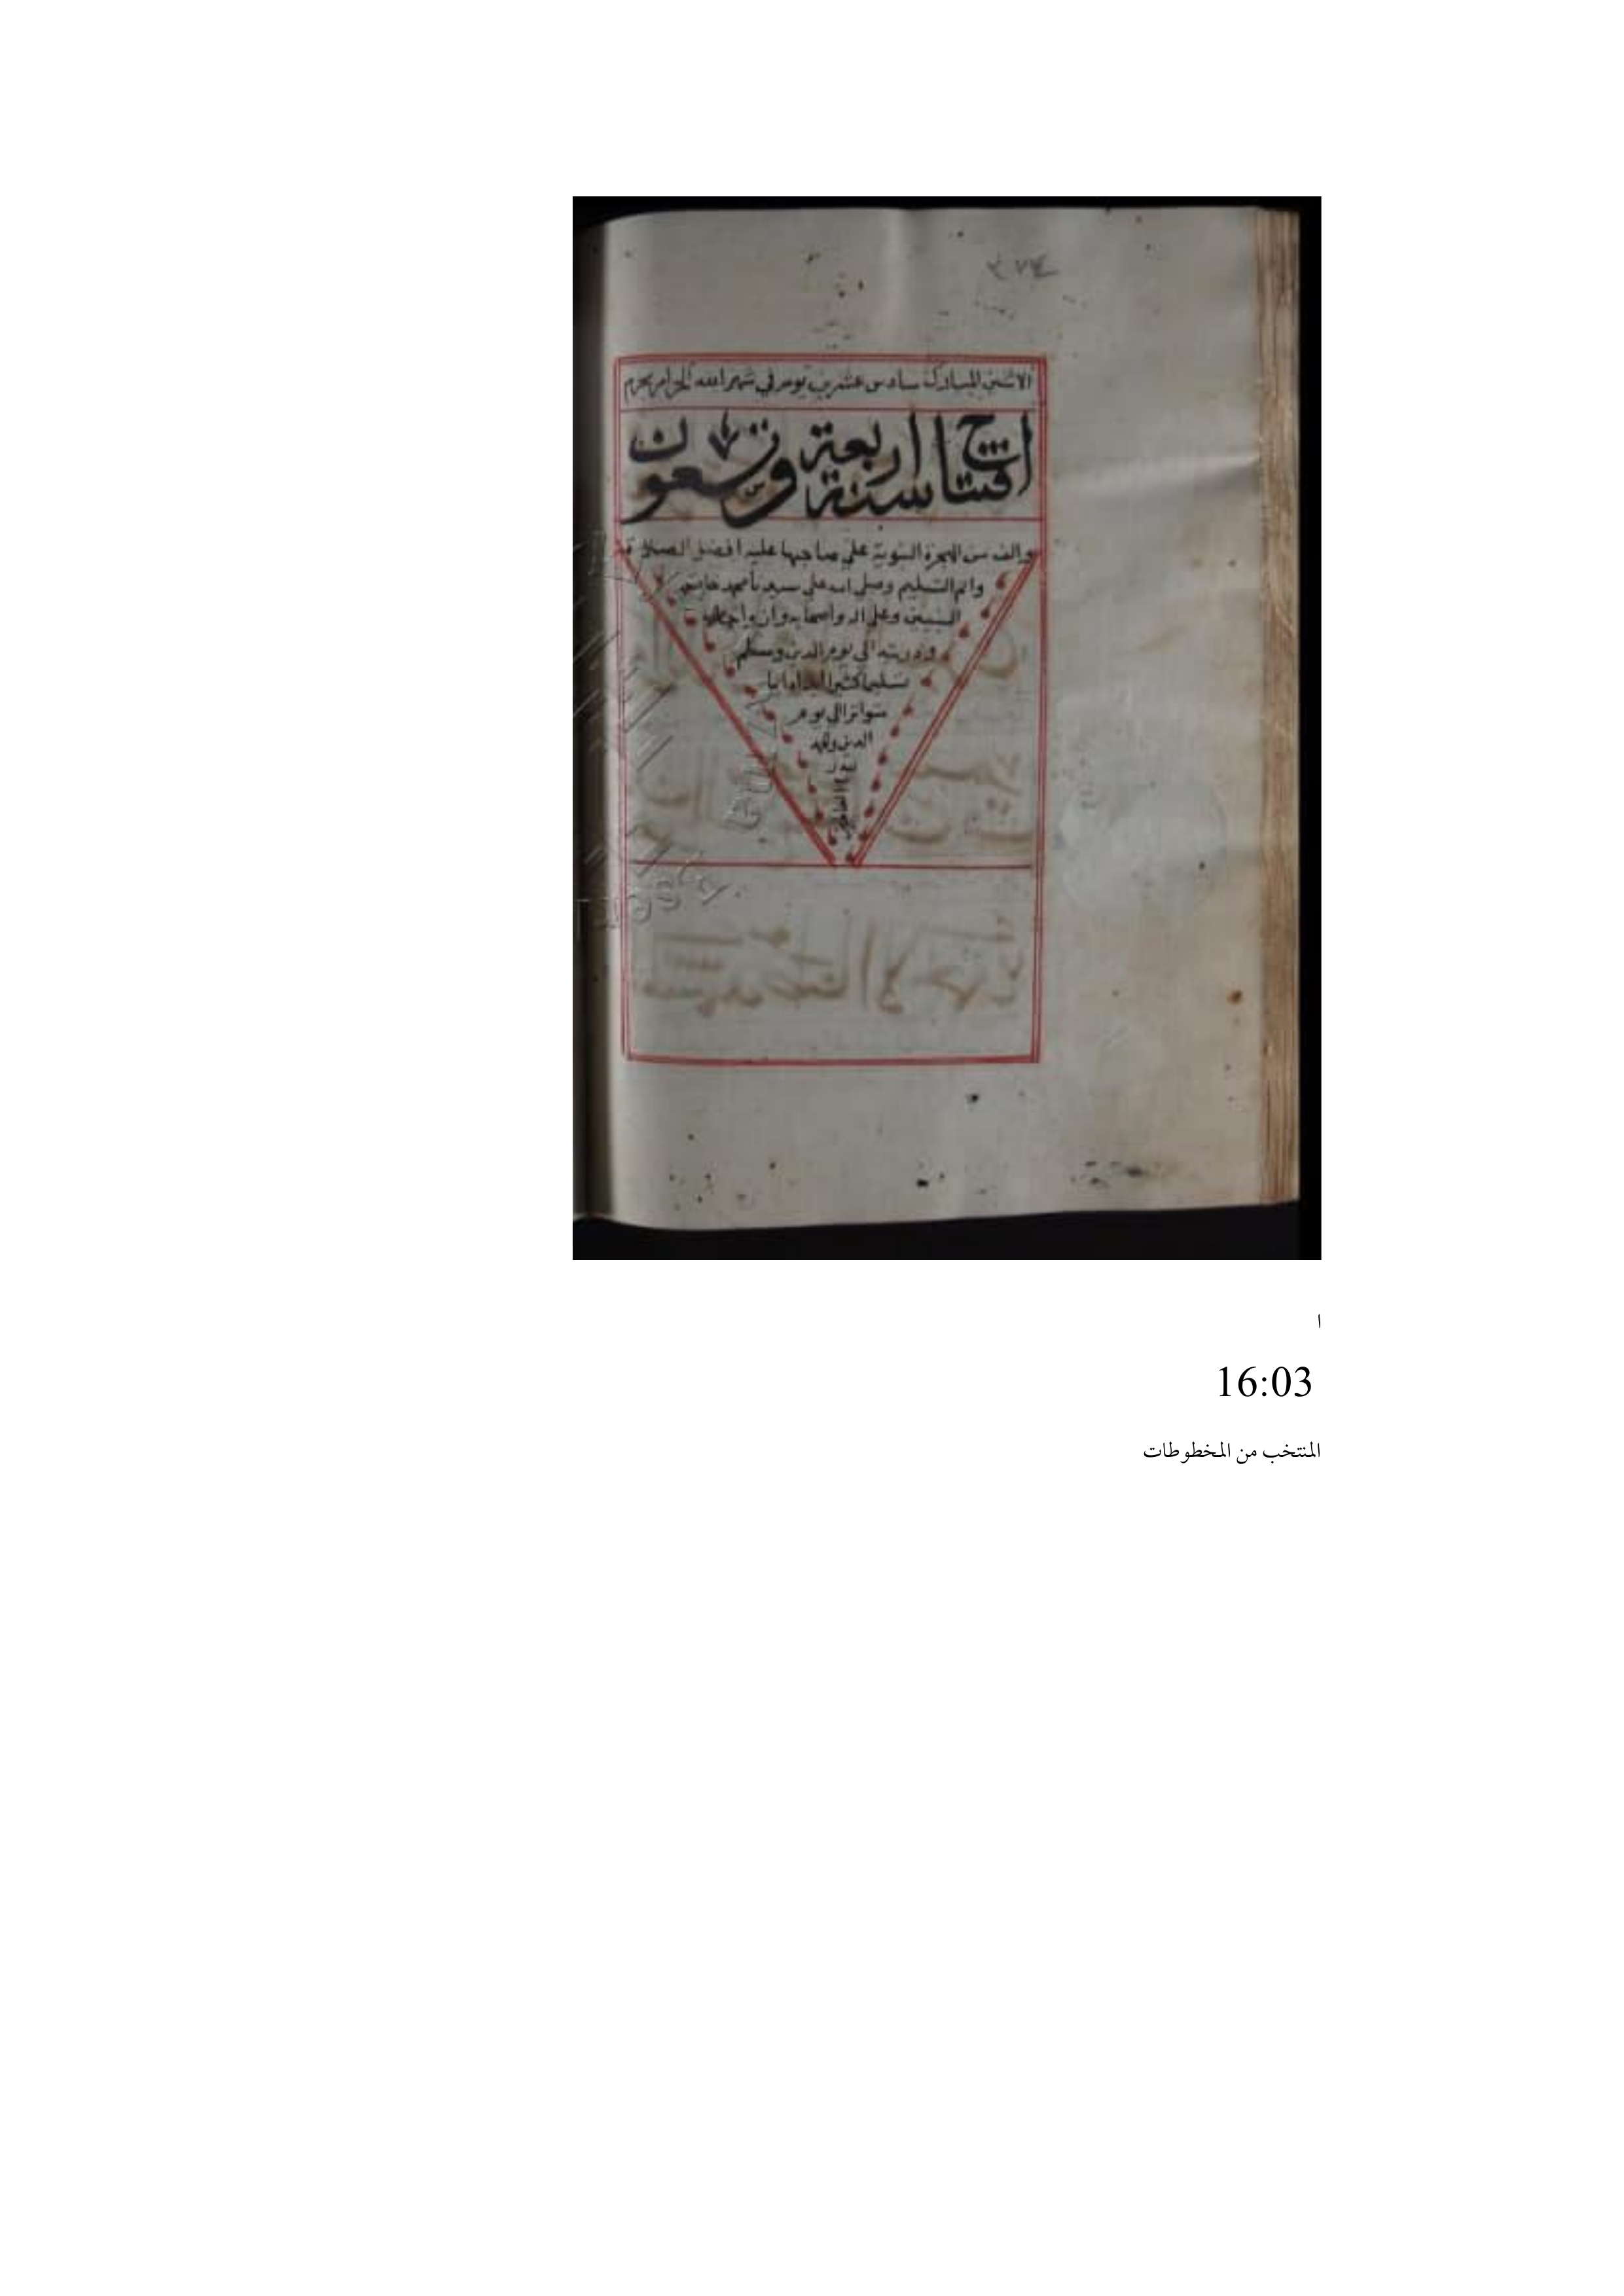 الاثنين المبارك سادس عشرين يوم في شهر الله الحرام محرم
افتتاح سنة اربعة وتسعون
والف من الهجرة النبوية علي صاحبها عليه افضل الصلاة
واتم التسليم وصلى الله على سيدنا محمد خاتم
النبيين وعلى اله واصحابه وازواجه
وذريته الى يوم الدين وسلم
تسليما كثيرا ابدا دايما
متواترا الى يوم
الدين والحمد
لله رب
العالمين
ا
16:03
المنتخب من المخطوطات